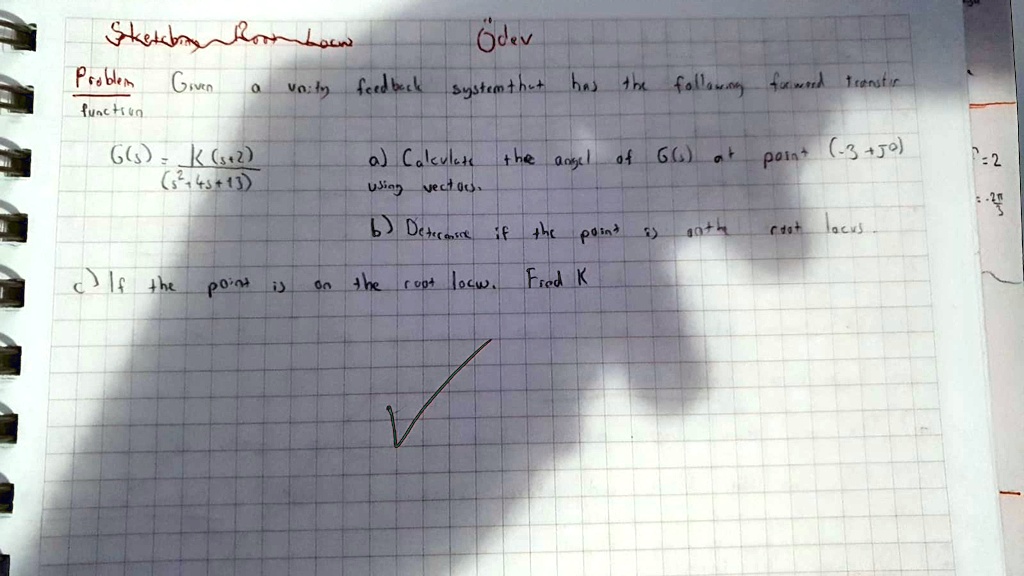 Sketching Root Locus
Ödev
Problem Given a unity feedback system that has the following forward transfer
function
G(s) = K(s+2)
(s²+4s+13)
a) Calculate the angel of G(s) at point (-3+j0)
using vectors.
b) Determine if the point is onthe root locus.
c) If the point is on the root locus. Find K
=2